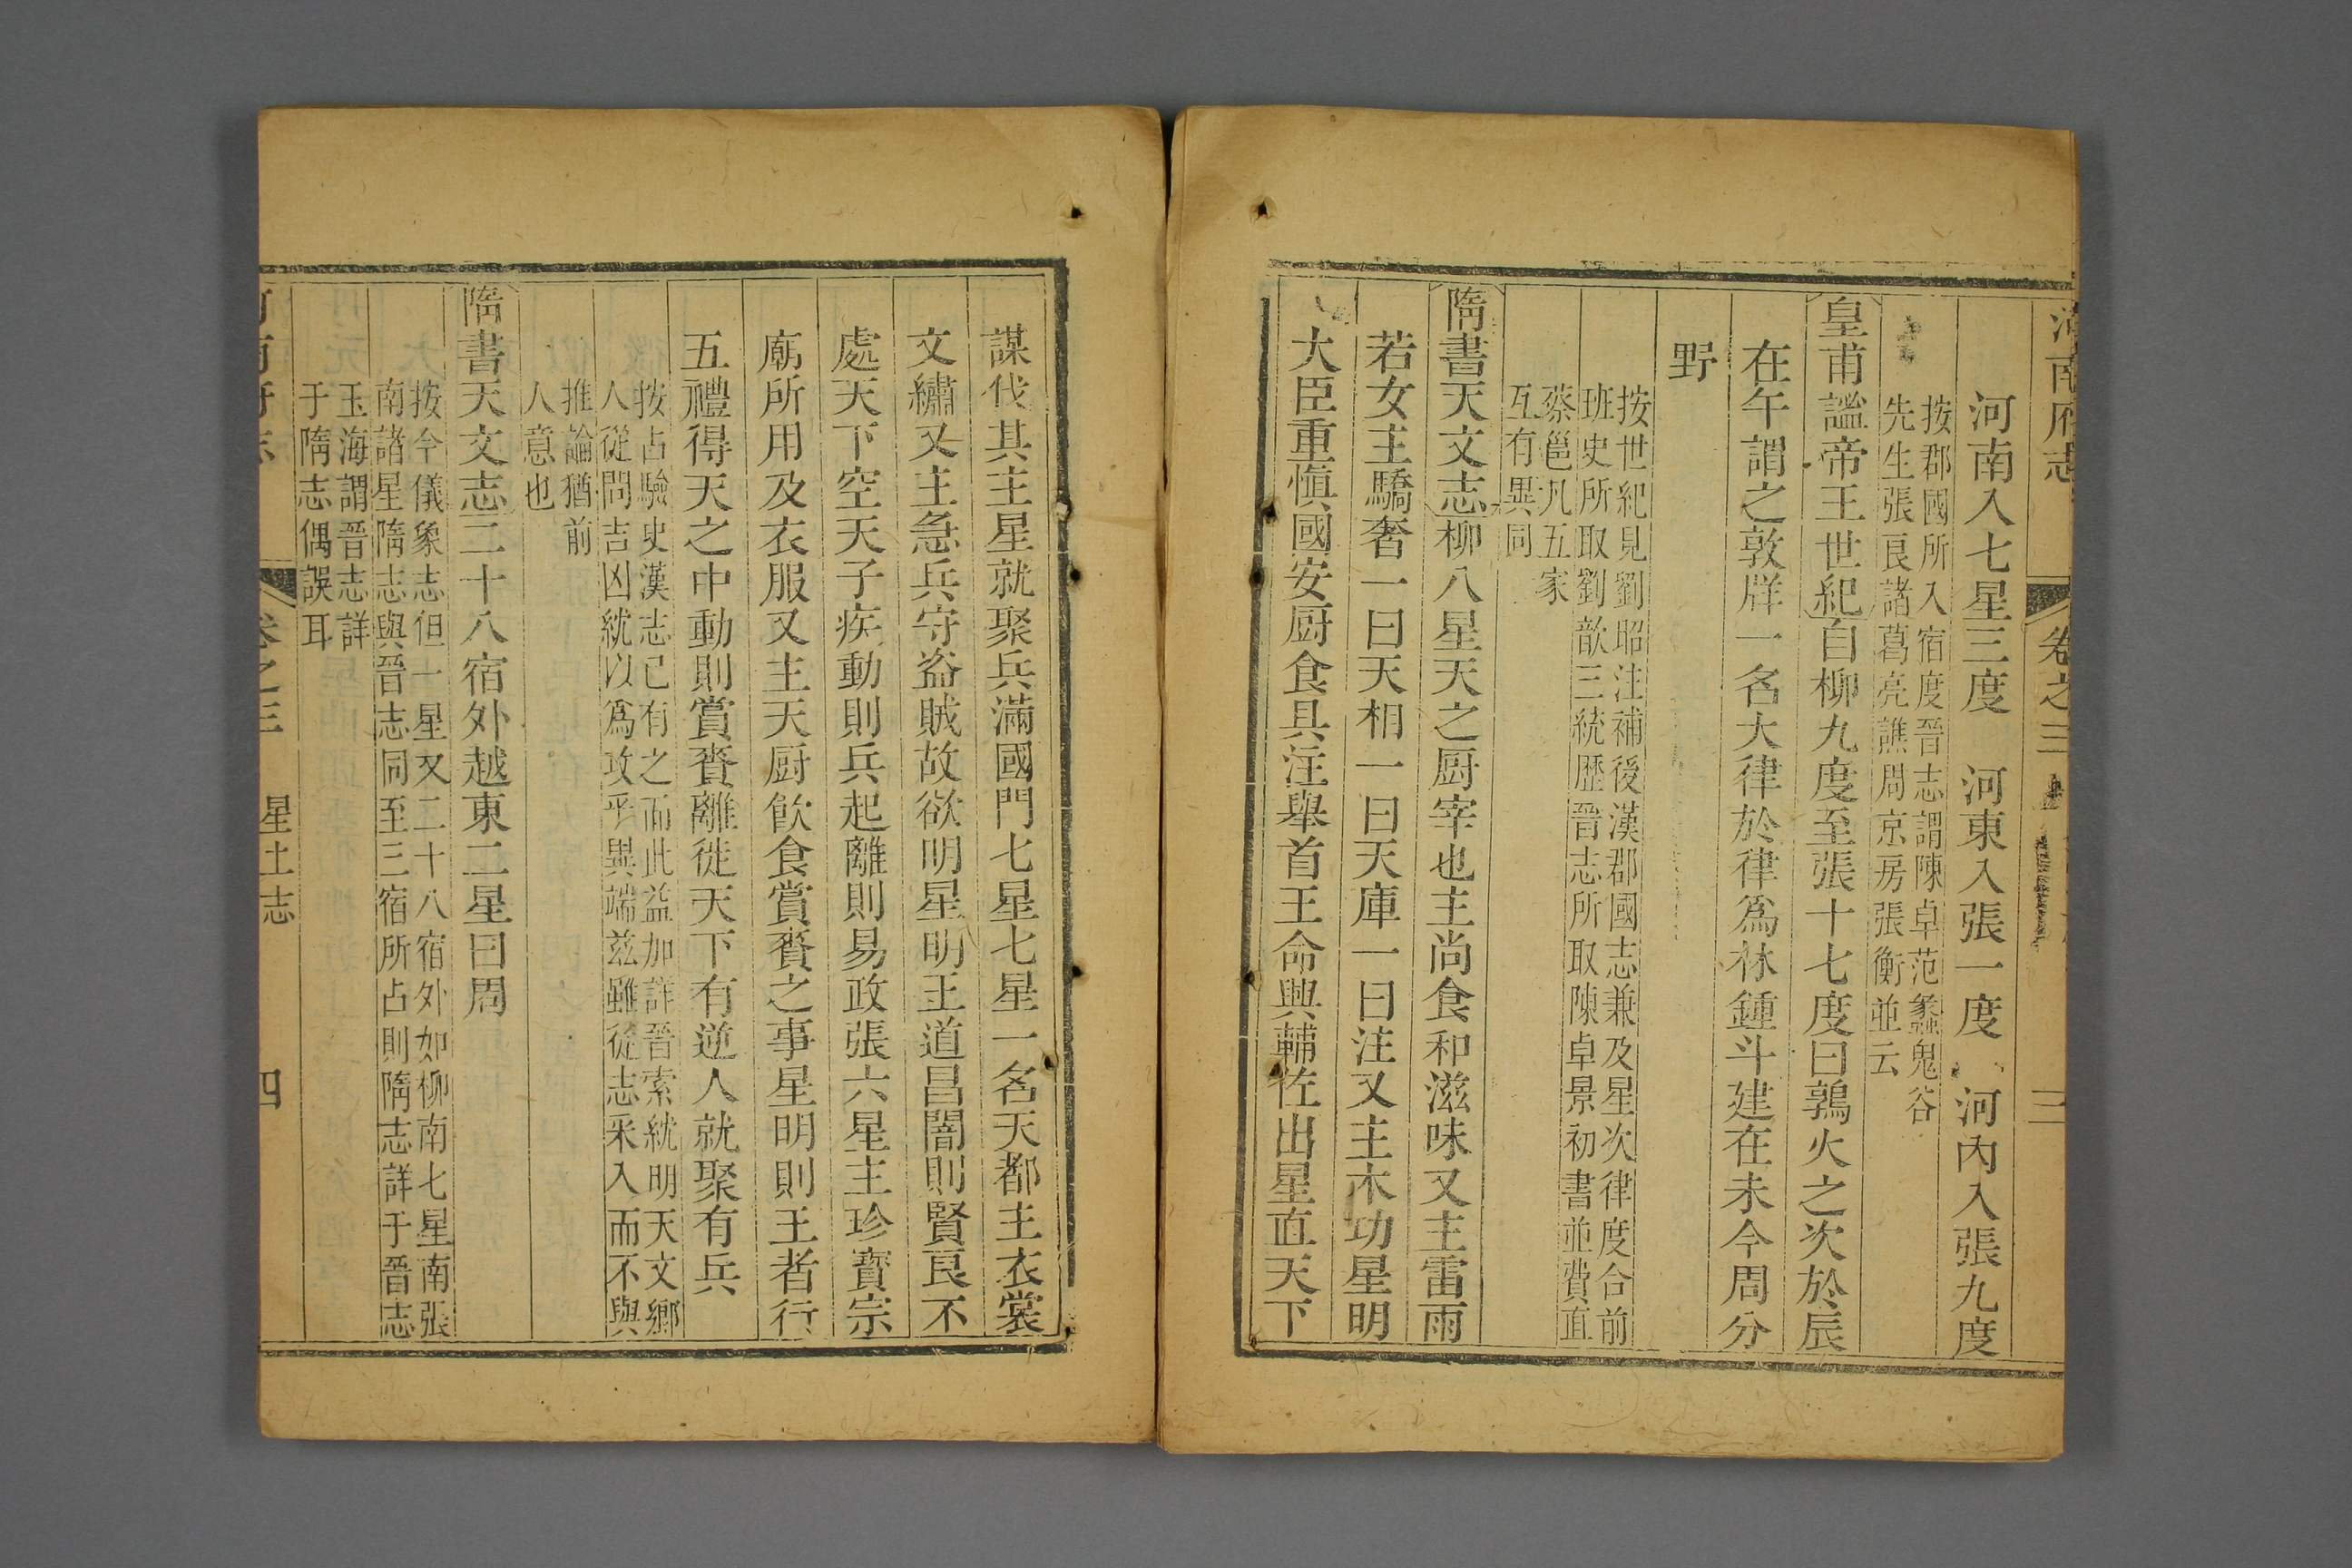 河南府志 卷之三 三
河南入七星三度 河東入張一度 河內入張九度
按郡國所入宿度晉志謂陳卓范蠡鬼谷
先生張良諸葛亮譙周京房張衡並云
皇甫謐帝王世紀自柳九度至張十七度曰鶉火之次於辰
在午謂之敦牂一名大律於律爲林鍾斗建在未今周分
野
按世紀見劉昭注補後漢郡國志兼及星次律度合前
班史所取劉歆三統歷晉志所取陳卓景初書並費直
蔡邕凡五家
互有異同
隋書天文志柳八星天之厨宰也主尚食和滋味又主雷雨
若女主驕奢一曰天相一曰天庫一曰注又主木功星明
大臣重愼國安厨食具注舉首王命興輔佐出星直天下
謀伐其主星就聚兵滿國門七星七星一名天都主衣裳
文繡又主急兵守盜賊故欲明星明王道昌闇則賢良不
處天下空天子疾動則兵起離則易政張六星主珍寳宗
廟所用及衣服又主天厨飮食賞賚之事星明則王者行
五禮得天之中動則賞賚離徙天下有逆人就聚有兵
按占驗史漢志已有之而此益加詳晉索紞明天文鄉
人從問吉凶紞以爲攻乎異端兹雖從志采入而不與
推論猶前
人意也
隋書天文志二十八宿外越東二星曰周
按今儀象志但一星又二十八宿外如柳南七星南張
南諸星隋志與晉志同至三宿所占則隋志詳于晉志
玉海謂晉志詳
于隋志偶誤耳
河南府志 卷之三 星土志 四